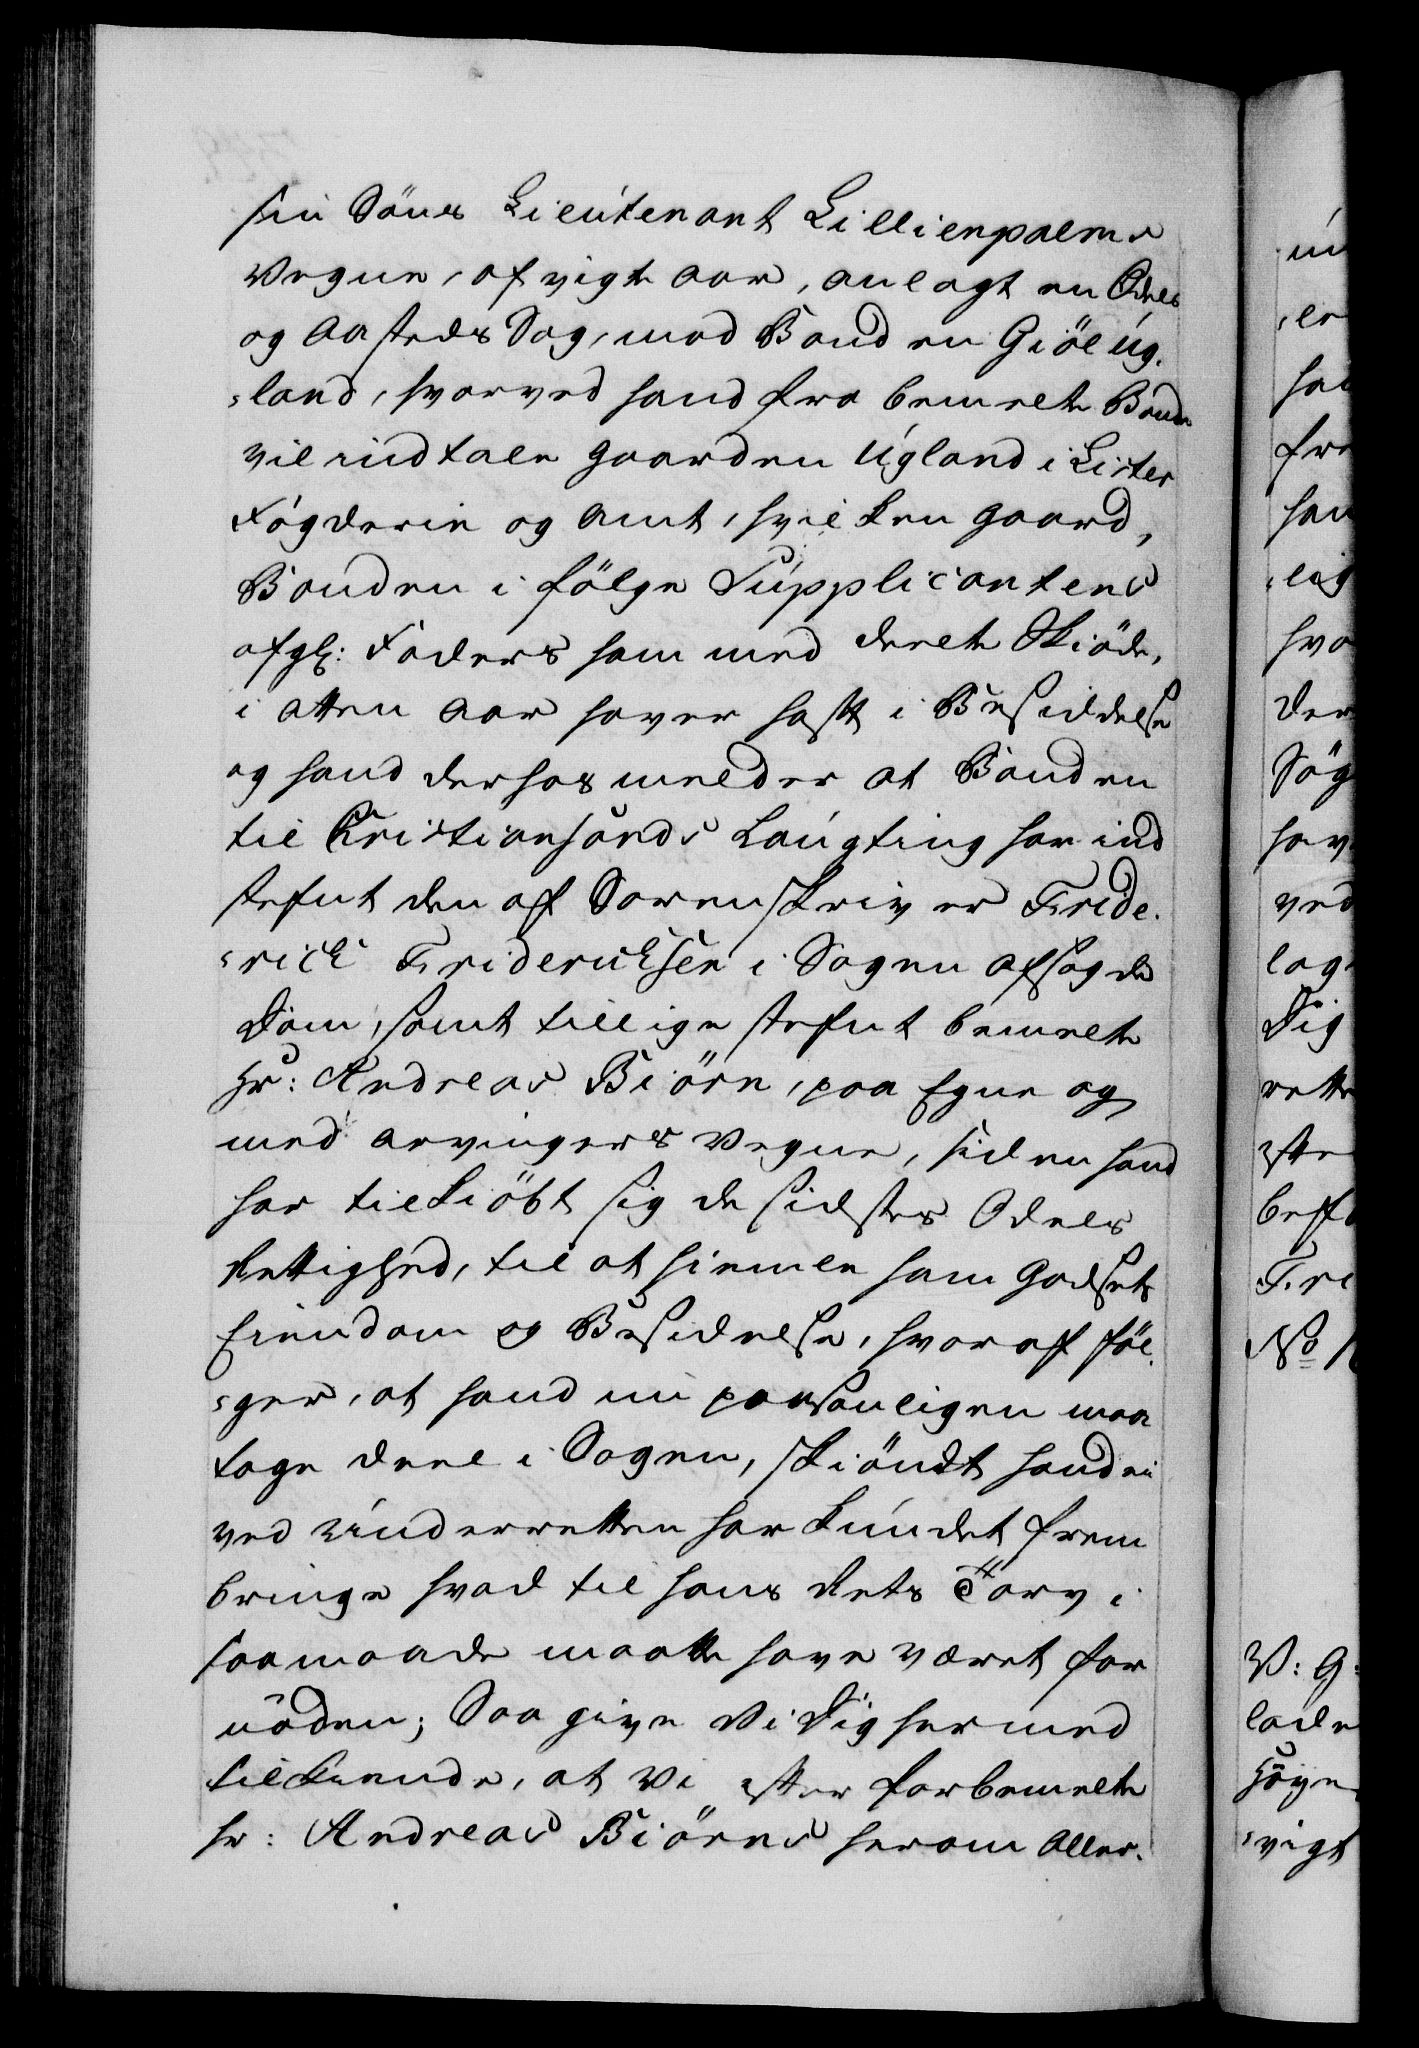 sin Søns Lieutenant Lillienpalms
Vegne, afvigte Aar, anlagt en Odels
og Aasteds Sag, mod Bonden Giöe Ug-
land, hvorved hand fra bemelte Bonde
vil indtale Gaarden Ugland i Lister
Fogderie og Amt, hvilken Gaard,
Bonden i fölge Supplicantens
afgl: Faders ham med deelte Skiöde,
i atten Aar haver haft i Besiddelse
og hand derhos melder at Bonden
til Christiansands Laugting har ind
stefnt den af Sorenskriver Fride-
rich Friderichsen i Sagen afsagde
Dom, samt tillige stefnt bemelte
Hr: Andreas Biörn, paa Egne og
med arvingers Vegne, siden hand
har tilkiöbt sig de sidstes Odels
Rettighed, til at hiemle ham Godsets
Eiendom og Besidelse, hvoraf föl-
ger, at hand nu personligen maa
tage deel i Sagen, skiöndt hand ei
ved Underretten har kundet frem
bringe hvad til hans Rets Tarv i
saamaade maatte have været for
nöden; Saa give Vi Dig hermed
tilkiende, at Vi efter forbemelte
Hr: Andreas Biörns herom Aller-